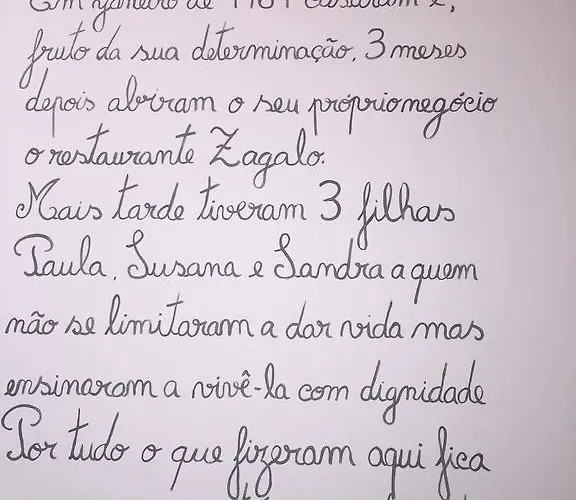 Em janeiro de casaram e,
fruto da sua determinação, 3 meses
depois abriram o seu próprio negócio
o restaurante Zagalo.
Mais tarde tiveram 3 filhas
Paula, Susana e Sandra a quem
não se limitaram a dar vida mas
ensinaram a vivê-la com dignidade
Por tudo o que fizeram aqui fica